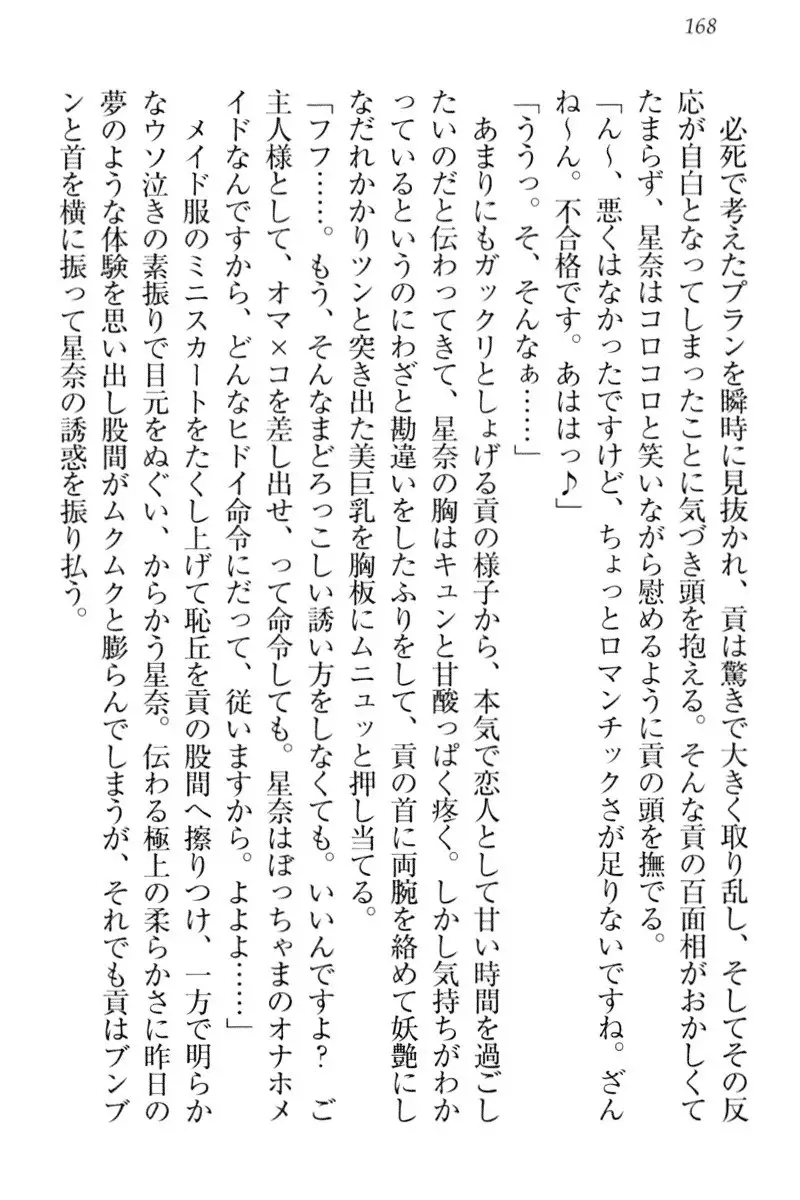 168
必死で考えたプランを瞬時に見抜かれ、貢は驚きで大きく取り乱し、そしてその反
応が自白となってしまったことに気づき頭を抱える。そんな貢の百面相がおかしくて
たまらず、星奈はコロコロと笑いながら慰めるように貢の頭を撫でる。
「ん〜、悪くはなかったですけど、ちょっとロマンチックさが足りないですね。ざん
ね〜ん。不合格です。あははっ♪」
「ううっ。そ、そんなぁ……」
あまりにもガックリとしょげる貢の様子から、本気で恋人として甘い時間を過ごし
たいのだと伝わってきて、星奈の胸はキュンと甘酸っぱく疼く。しかし気持ちがわか
っているというのにわざと勘違いをしたふりをして、貢の首に両腕を絡めて妖艶にし
なだれかかりツンと突き出た美巨乳を胸板にムニュッと押し当てる。
「フフ……。もう、そんなまどろっこしい誘い方をしなくても。いいんですよ？　ご
主人様として、オマ×コを差し出せ、って命令しても。星奈はぼっちゃまのオナホメ
イドなんですから、どんなヒドイ命令にだって、従いますから。よよよ……」
メイド服のミニスカートをたくし上げて恥丘を貢の股間へ擦りつけ、一方で明らか
なウソ泣きの素振りで目元をぬぐい、からかう星奈。伝わる極上の柔らかさに昨日の
夢のような体験を思い出し股間がムクムクと膨らんでしまうが、それでも貢はブンブ
ンと首を横に振って星奈の誘惑を振り払う。